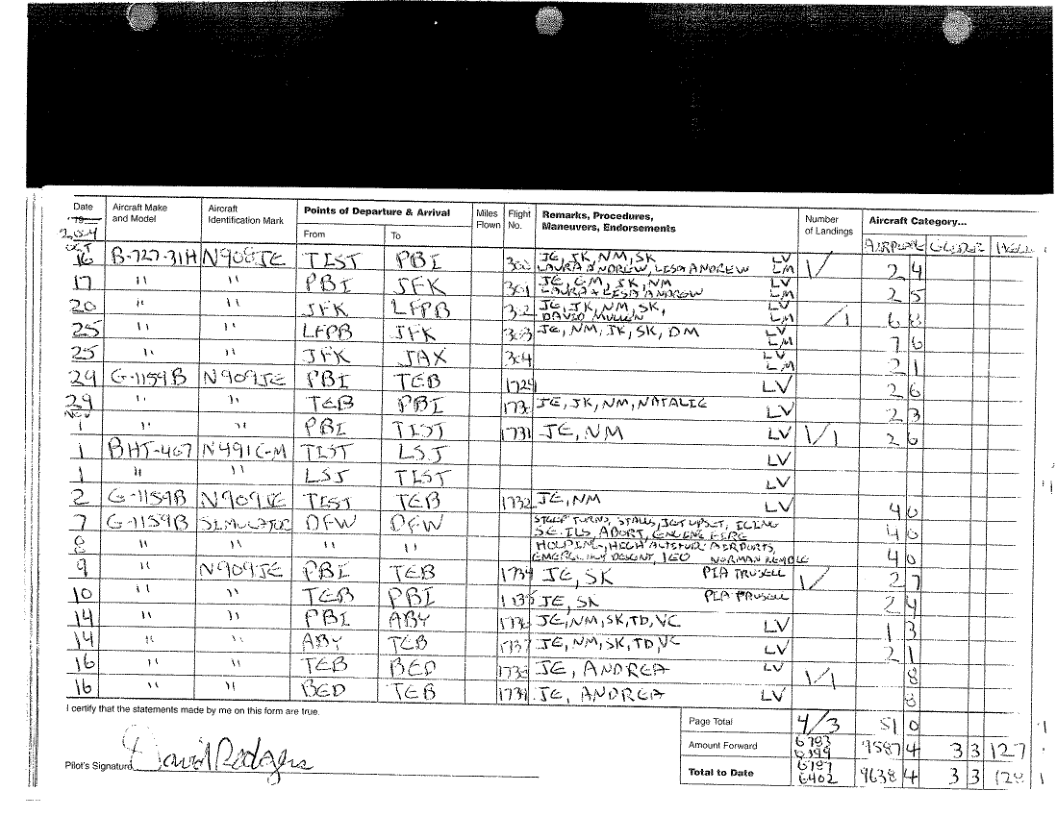 Date Aircraft Make and Model Aircraft Identification Mark Points of Departure & Arrival Miles Flown Flight No. Remarks, Procedures, Maneuvers, Endorsements Number of Landings Aircraft Category...
19 2004 From To AIRPLANE
OCT 16 B-727-31H N908JE TIST PBI JE, JK, NM, SK LAURA ANDREW, LISA ANDREW LV LM 1/ 2 4
17 " " PBI JFK 301 JE, GM, SK, NM LAURA & LISA ANDREW LV LM 2 5
20 " " JFK LFPB 302 JE, JK, NM, SK, DAVID MULLEN LV LM /1 6 8
25 " " LFPB JFK 303 JE, NM, JK, SK, DM LV LM 7 6
25 " " JFK JAX 304 LV LM 2 1
29 G-1159B N909JE PBI TEB 1729 LV 2 6
29 " " TEB PBI 1730 JE, JK, NM, NATALIE LV 2 3
NOV 1 " " PBI TIST 1731 JE, NM LV 1/1 2 6
1 BHT-407 N491GM TIST LSJ LV
1 " " LSJ TIST LV
2 G-1159B N909JE TIST TEB 1732 JE, NM LV 4 0
7 G-1159B SIMULATOR DFW DFW STEEP TURNS, STALLS, JET UPSET, ICING S.E. ILS, ABORT, ENGINE FIRE 4 0
8 " " " " HOLDING, HIGH ALTITUDE AIRPORTS, EMERGENCY DESCENT, NORMAN KEMBLE 4 0
9 " N909JE PBI TEB 1734 JE, SK PIA TRUSELL 1/ 2 7
10 " " TEB PBI 1735 JE, SK PIA TRUSELL 2 4
14 " " PBI ABY 1736 JE, NM, SK, TD, VC LV 1 3
14 " " ABY TEB 1737 JE, NM, SK, TD, VC LV 2 1
16 " " TEB BED 1738 JE, ANDREA LV 1/1 8
16 " " BED TEB 1739 JE, ANDREA LV 8
I certify that the statements made by me on this form are true.
Page Total 4/3 51 0
Amount Forward 6783 6399 9587 4 3 3 127
Pilot's Signature David Rodgers
Total to Date 6787 6402 9638 4 3 3